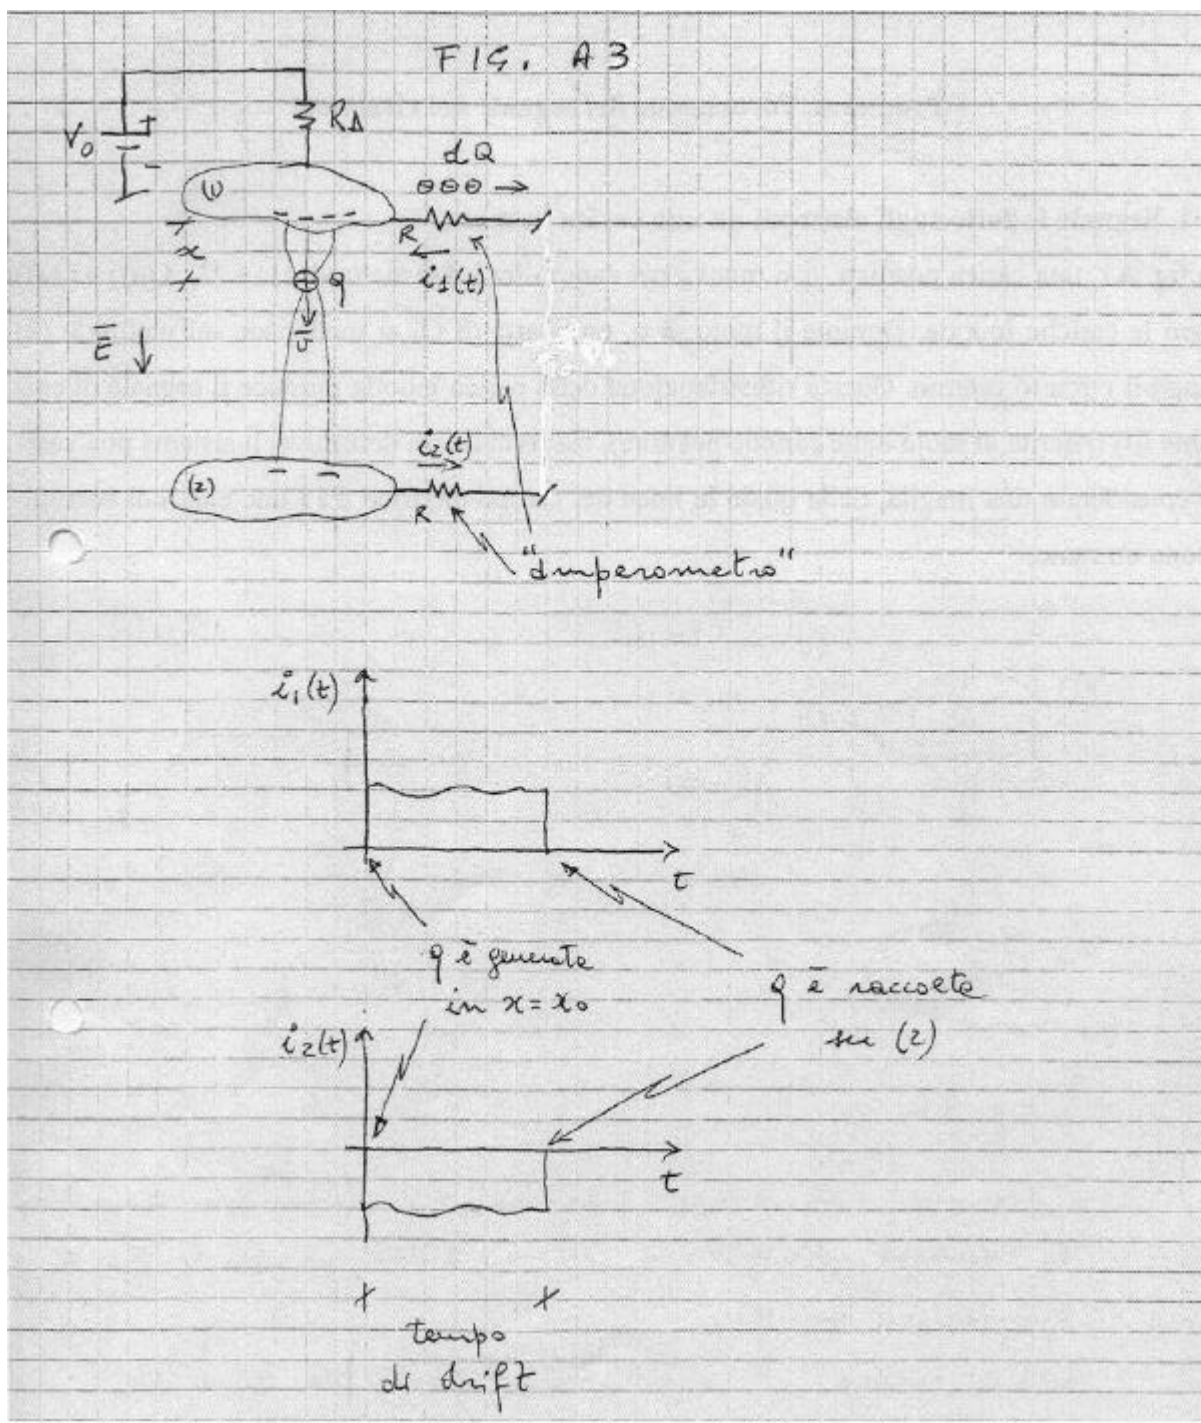 FIG. A3
V₀
+
-
RΔ
dQ
⊖⊖⊖ →
(1)
R
i₁(t)
x
⊕ q
E
i₂(t)
(2)
R
"Amperometro"
i₁(t)
t
q è generata
in x = x₀
q è raccolta
su (2)
i₂(t)
t
tempo
di drift